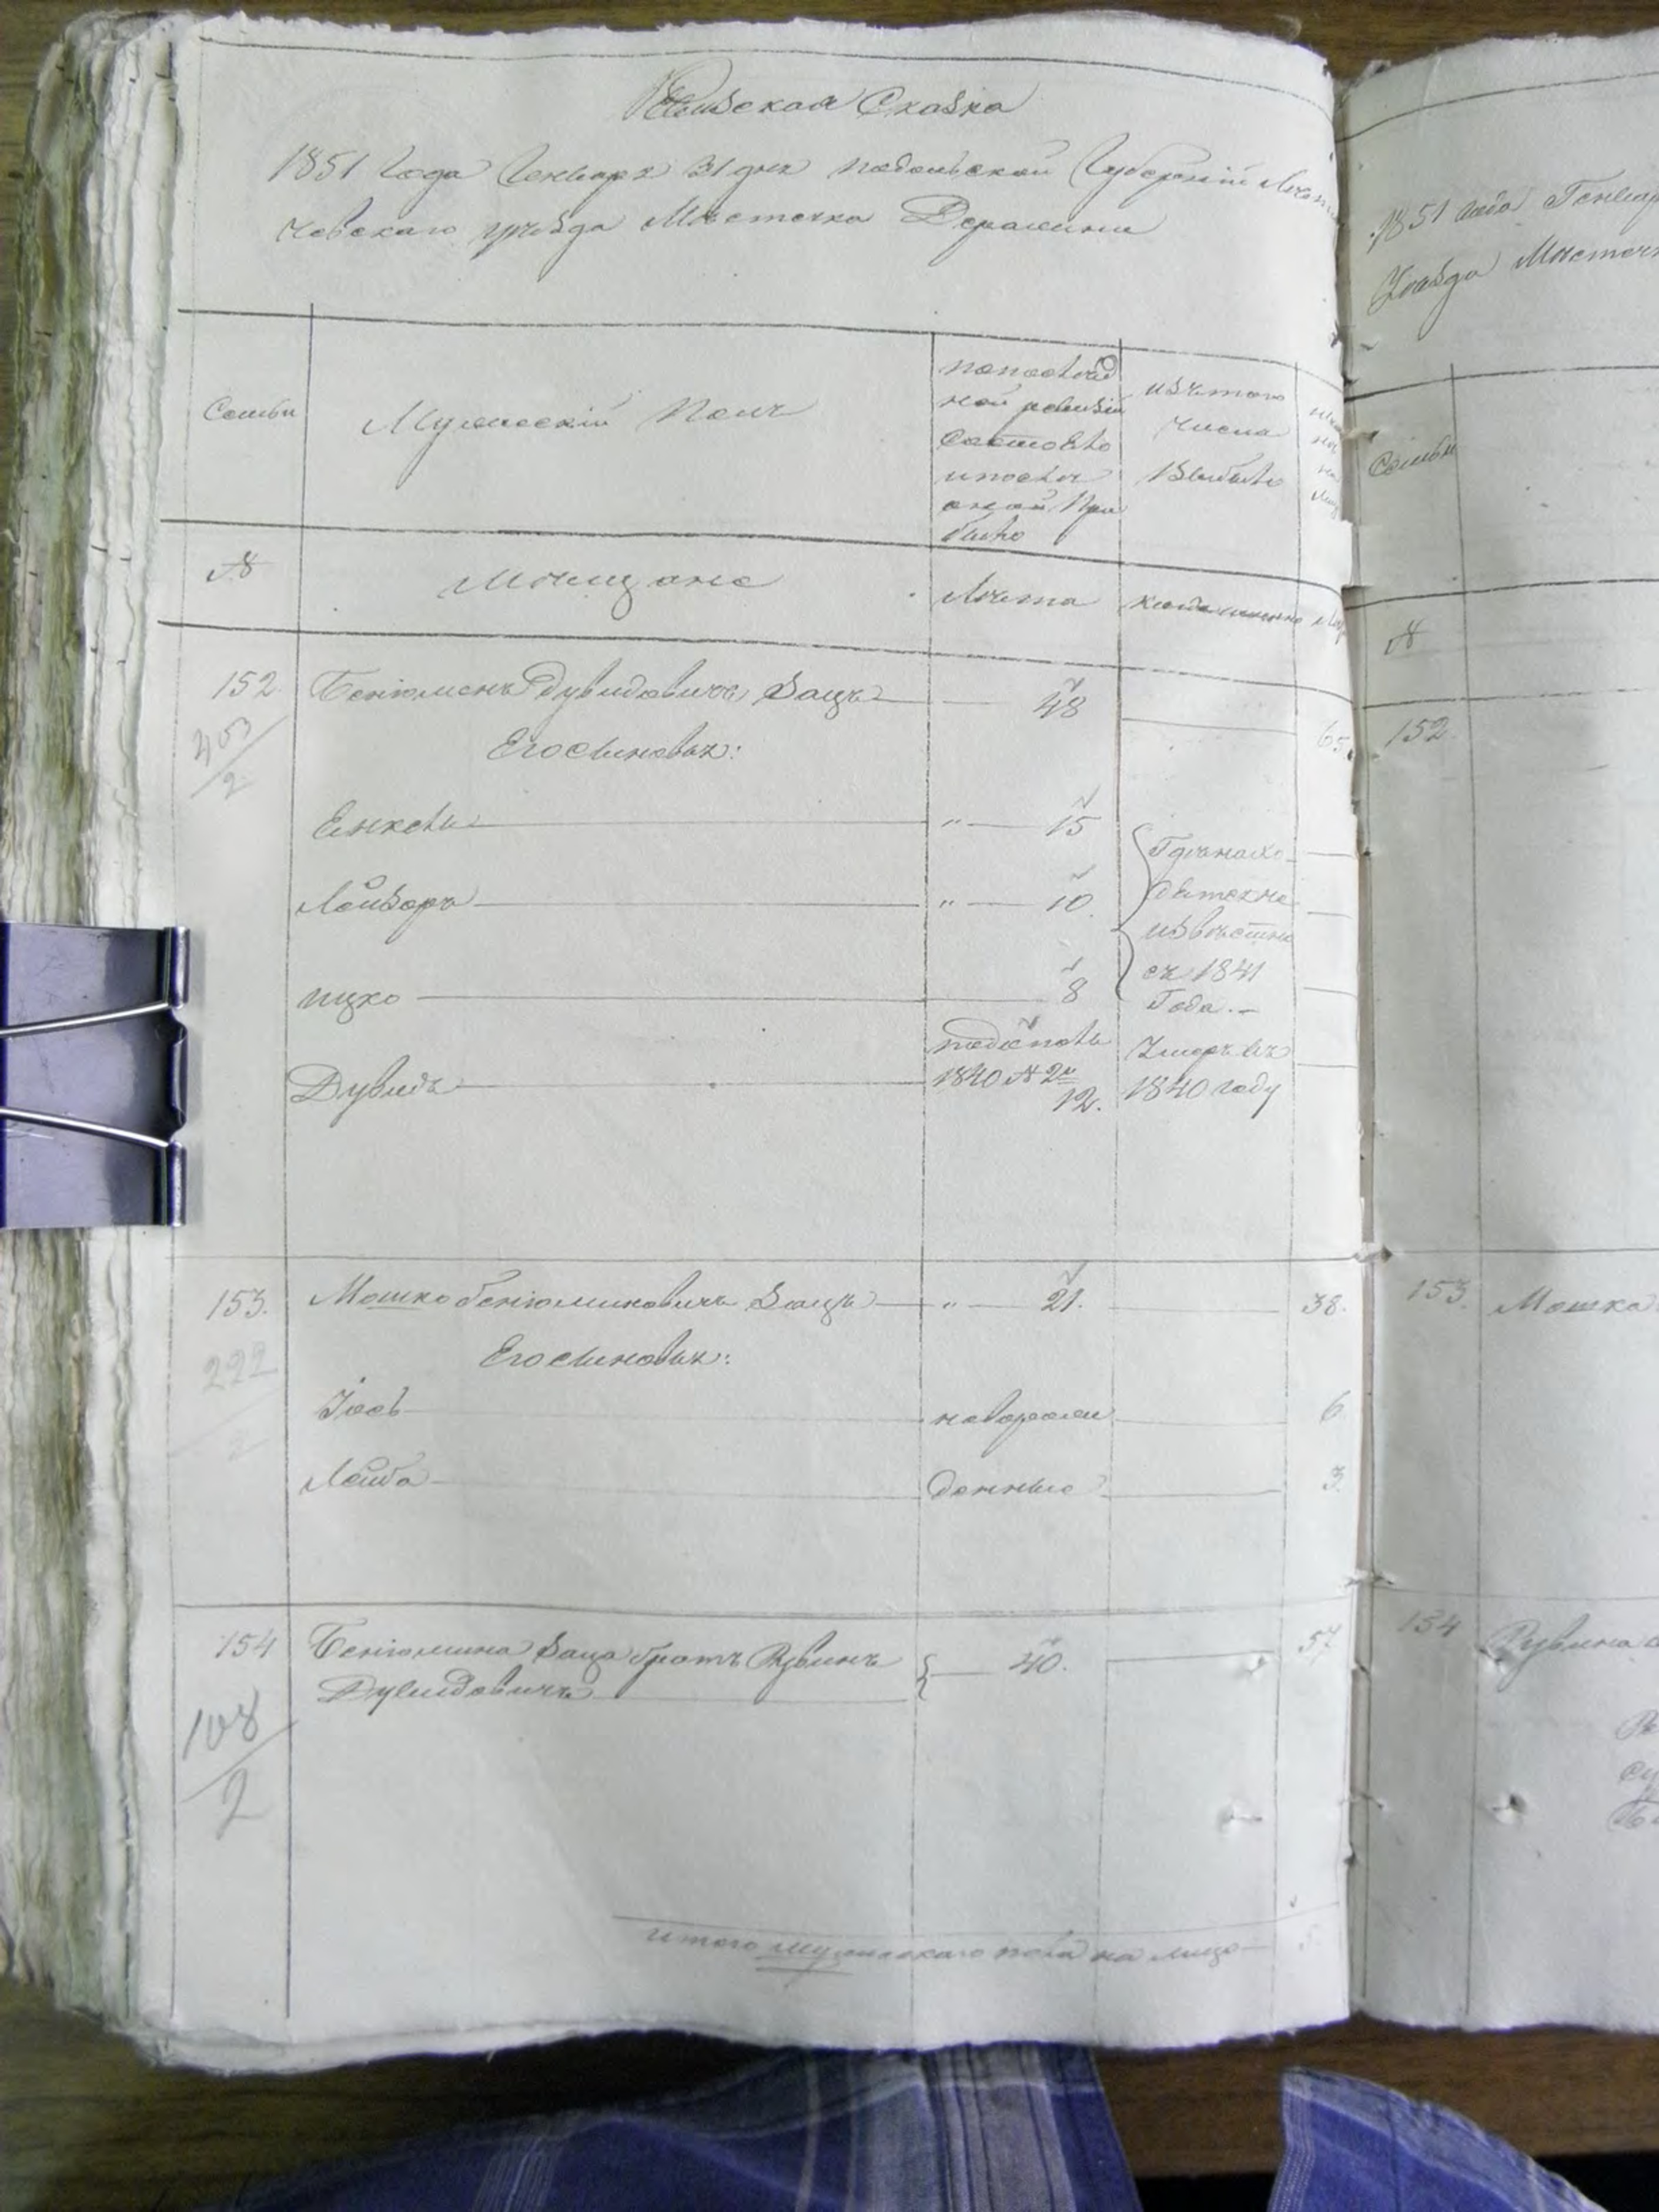 Ревизская Сказка
1851 Года Генваря 31 дня подольской Губернии Летичевскаго уезда Местечка Деражни
Семьи
Мужескій Полъ
попослед
ней ревизіи
состояло
ипосле
оной При
было
изътого
числа
Выбыло
№
Мещане
Лета
152
Беніоменъ Дувидовичъ Зацъ
48
65
Егосыновья:
Енкель
" 15
Лейзоръ
" 10
ицко
8
Где нахо
дятся не
известно
съ 1841
Года. —
Дувидъ
1840 № 2й
12.
Умеръ въ
1840 году
153.
Мошко беніоминовичъ Зацъ
" 21.
38.
222
Егосыновья:
Іось
новорож
6
Лейба
денные
3.
154
Беніомина Заца братъ Рувинъ
Дувидовичъ
40.
57
108
2
итого мужескаго пола на лицо
1851 года Генвар
Уезда Местеч
Семьи
№
152.
153.
Мошка
154
Рувина